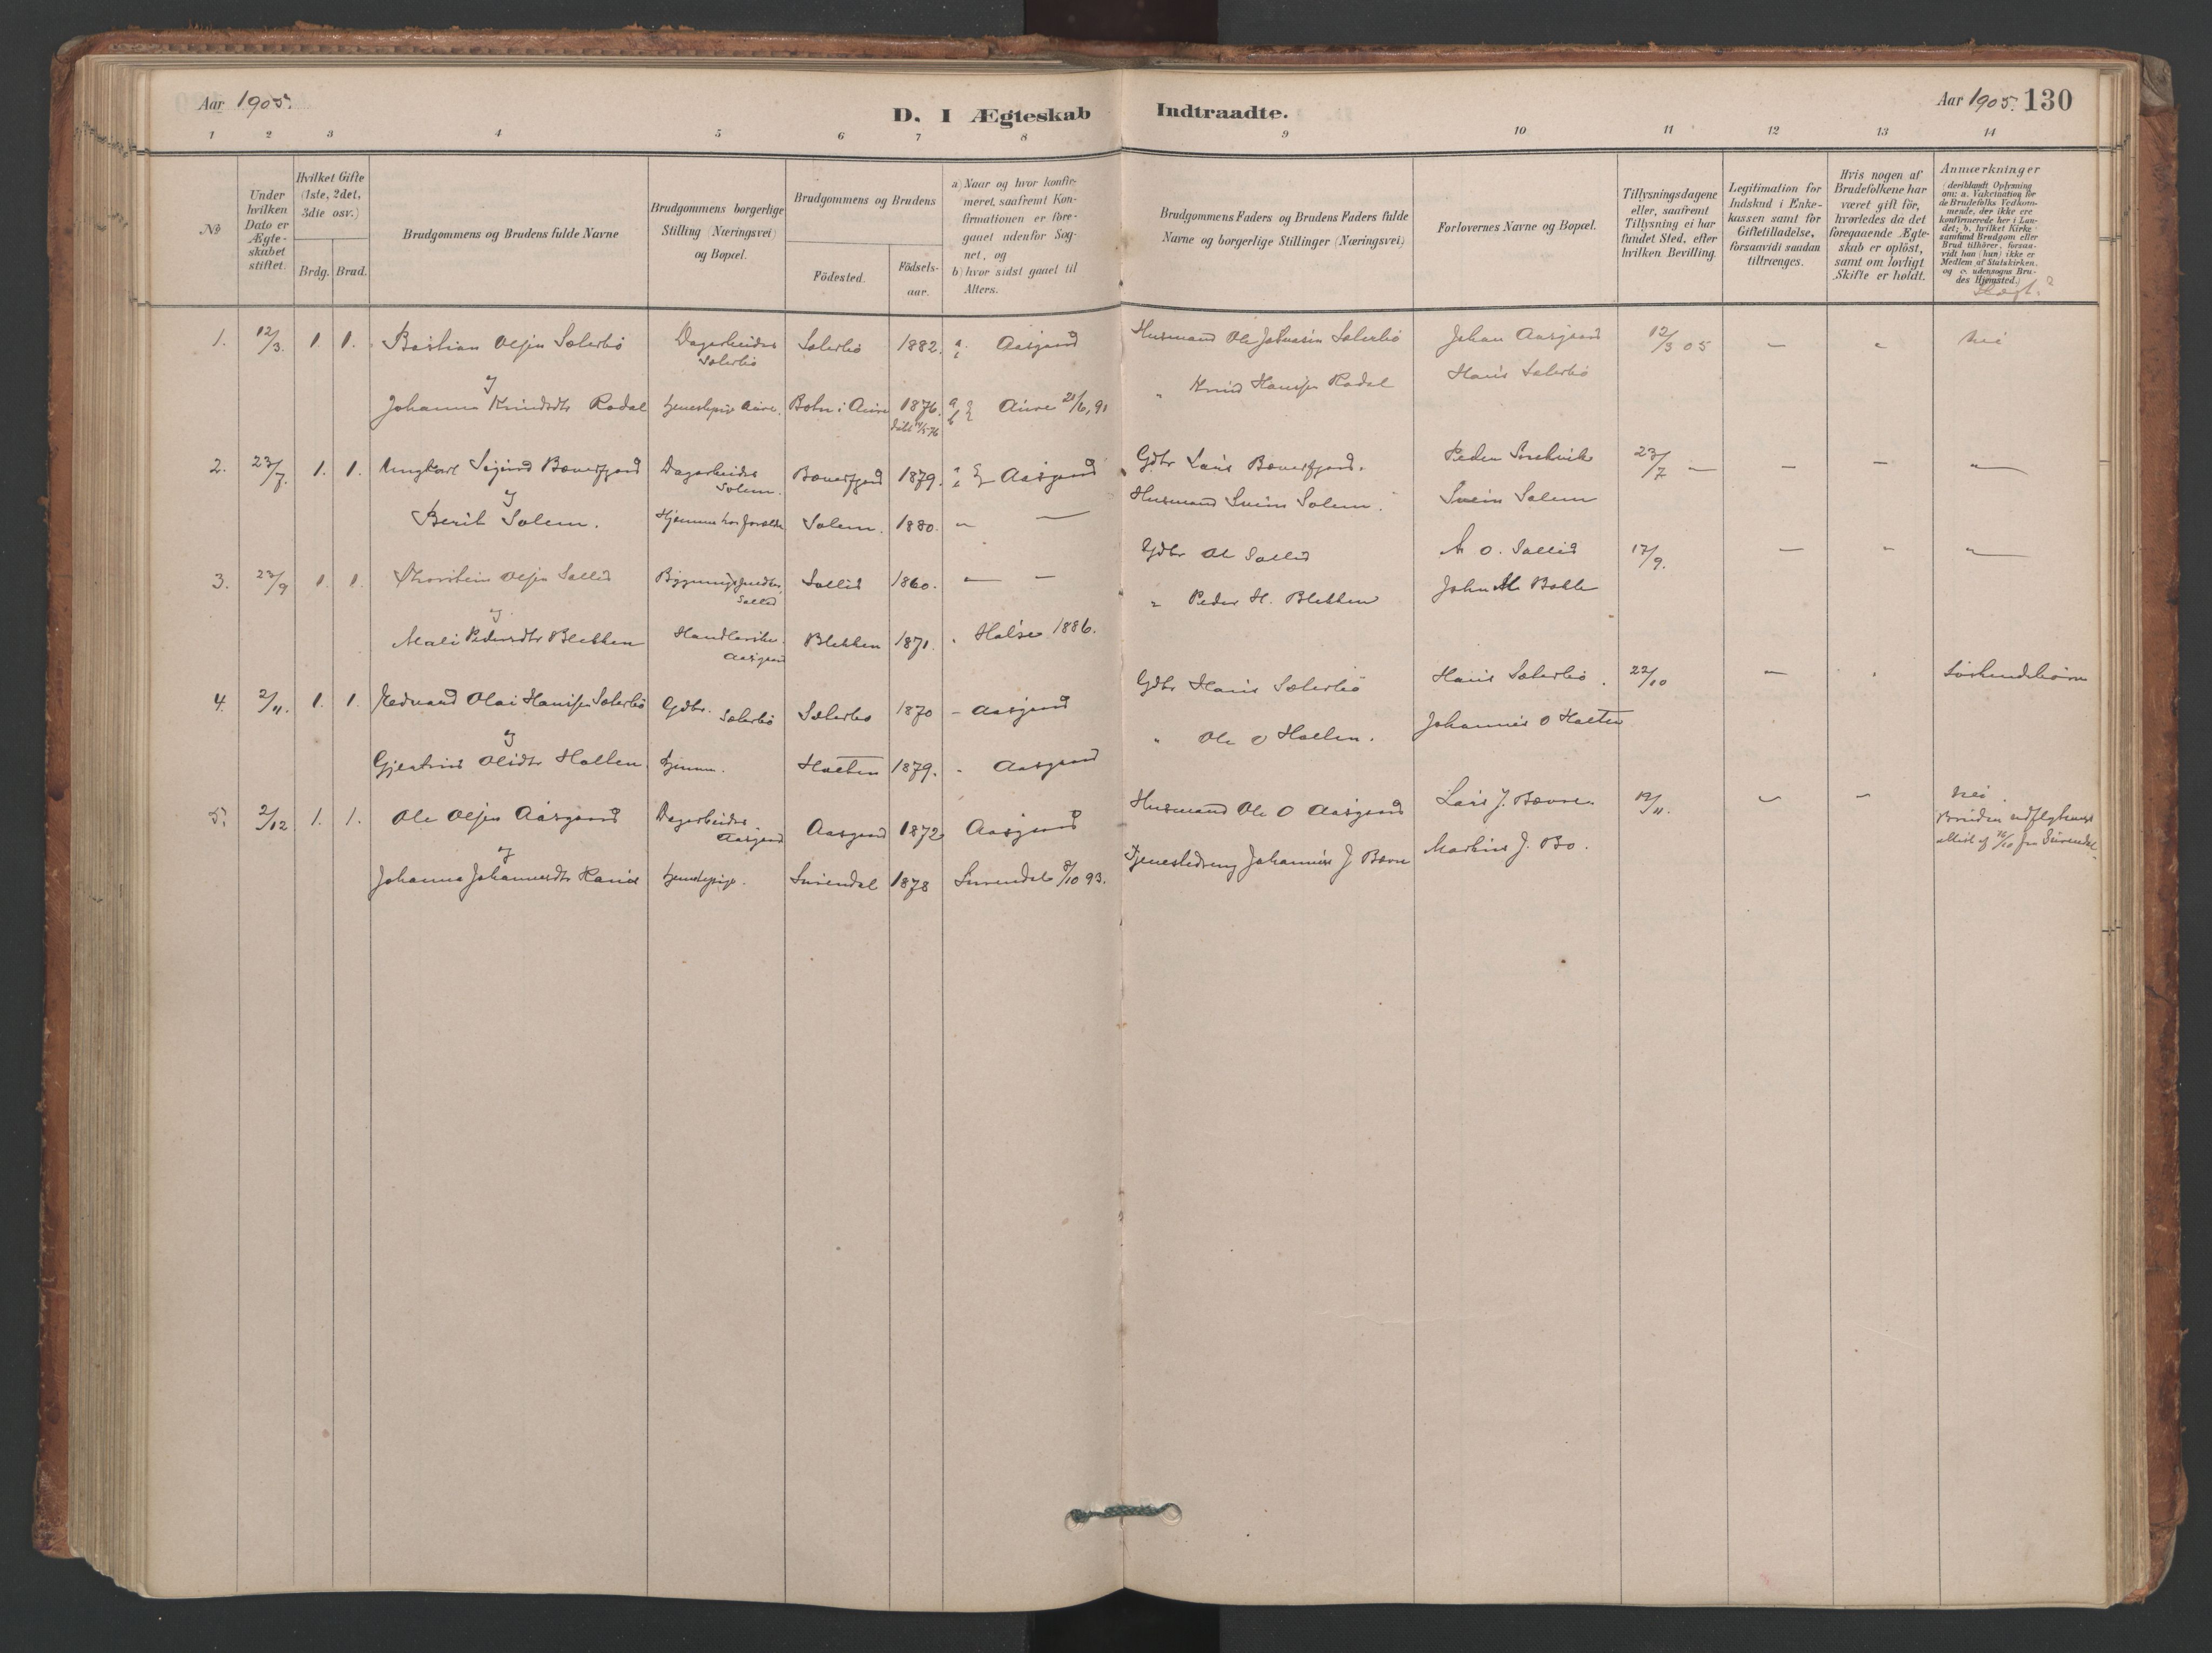 Aar 1905.
D. I Ægteskab Indtraadte.
Aar 1905. 130
1 2 3 4 5 6 7 8 9 10 11 12 13 14
No
Under hvilken Dato er Ægte-skabet stiftet.
Hvilket Gifte (1ste, 2det, 3die osv.)
Brdg. Brud.
Brudgommens og Brudens fulde Navne
Brudgommens borgerlige Stilling (Næringsvei) og Bopæl.
Brudgommens og Brudens
Födested. Födsels-aar.
a) Naar og hvor konfir-meret, saafremt Kon-firmationen er fore-gaaet udenfor Sog-net, og
b) hvor sidst gaaet til Alters.
Brudgommens Faders og Brudens Faders fulde Navne og borgerlige Stillinger (Næringsvei)
Forlovernes Navne og Bopæl.
Tillysningsdagene eller, saafremt Tillysning ei har fundet Sted, efter hvilken Bevilling.
Legitimation for Indskud i Enke-kassen samt for Giftetilladelse, forsaavidt saadan tiltrænges.
Hvis nogen af Brudefolkene har været gift för, hvorledes da det foregaaende Ægte-skab er oplöst, samt om lovligt Skifte er holdt.
Anmærkninger
(deriblandt Oplysning om: a. Vakcination for de Brudefolks Vedkom-mende, der ikke ere konfirmerede her i Lan-det; b. hvilket Kirke-samfund Brudgom eller Brud tilhörer, forsaa-vidt han (hun) ikke er Medlem af Statskirken, og c. udensogns Bru-des Hjemsted.)
Slægt.?
1. 12/3. 1. 1. Bastian Olsen Sæterbö Dagarbeider Sæterbö Sæterbö 1882. a. Aasgaard Husmand Ole Sæterbö Johan Aasgaard 12/3 05 - - Nei
og
Johanna Knudsdtr Rodal tjenestepige Aure. Botn i Aure 1876. a b Aure 21/6, 91 " Knud Hanssen Rodal Hans Sæterbö
döbt 14/5 76
2. 23/7. 1. 1. Ungkarl Sigurd Bæverfjord Dagarbeider Solem. Bæverfjord 1879. Aasgaard Gdbr Lars Bæverfjord. Peder 23/7 - - - "
og
Berit Solem. Hjemme hos foræld. Solem. 1880. " — Husmand Svein Solem. Svein Solem
3. 23/9 1. 1. Thorstein Olsen Sollid Sollid Sollid 1860. — — Gdbr Ole Sollid A. O. Sollid 17/9. - " "
og
Mali Pedersdtr Blekken Handlerske. Aasgaard Blekken 1871. Halse 1886. " Peder H. Blekken John M. Bolle
4. 2/11. 1. 1. Edvard Olai Hanssen Sæterbö Gdbr. Sæterbö Sæterbö 1870 - Aasgaard Gdbr Hans Sæterbö Hans Sæterbö. 22/10 - Söskendebörn
og
Gjertrud Olsdtr Holten hjemme. Holten 1879. - Aasgaard " Ole O Holten. Johannes O Holten
5. 2/12. 1. 1. Ole Olsen Aasgaard Dagarbeider Aasgaard Aasgaard 1872 Aasgaard Husmand Ole O Aasgaard Lars J. Bævre. 19/11. - - Nei.
og
Bruden udflytnings attest af 16/10 fra Surendal.
Johanna Johannesdtr tjenestepige. Surendal 1878 Surendal 8/10 93. Johannes J. Bævre Markus J. Bö.